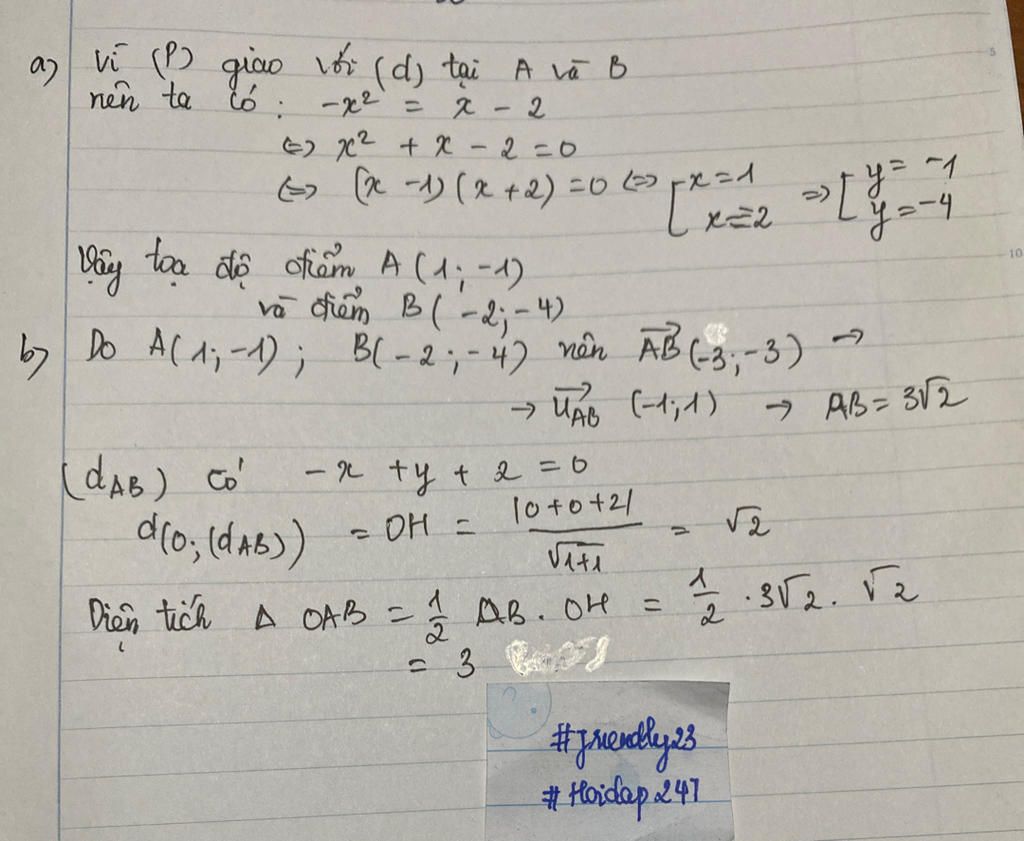 a) Vì (P) giao với (d) tại A và B
nên ta có : -x² = x - 2
<=> x² + x - 2 = 0
<=> (x -1) (x + 2) = 0 <=> [ x = 1 => [ y = -1
x = -2 y = -4
Vậy toạ độ điểm A (1; -1)
và điểm B ( -2; -4)
b) Do A(1; -1) ; B(-2 ; -4) nên AB→ (-3; -3) →
→ u→AB (-1; 1) → AB = 3√2
(dAB) có -x + y + 2 = 0
d(O; (dAB)) = OH = |0+0+2| / √1+1 = √2
Diện tích Δ OAB = 1/2 AB . OH = 1/2 . 3√2 . √2
= 3
#friendly23
# Hoidap 247
5
10